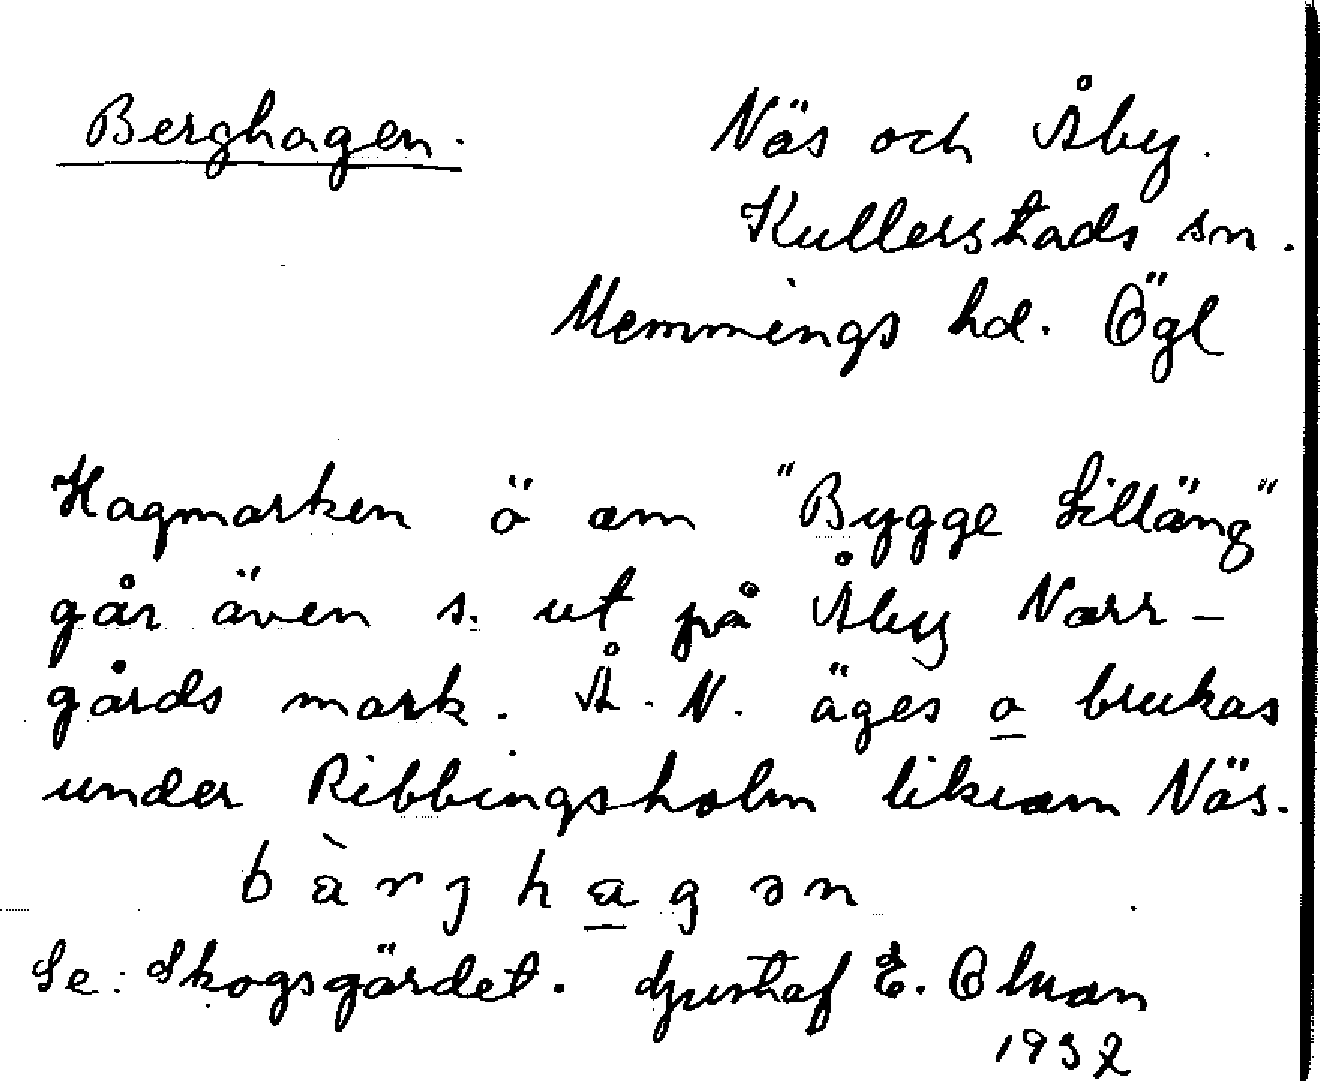 Berghagen.
Näs och Åby.
Kullerstads sn.
Memmings hd. Ögl
Hagmarken ö om "Bygge Lilläng"
går även s. ut på Åby Norr-
gårds mark. Å. N. äges o brukas
under Ribbingsholm liksom Näs.
bàrjhagən
Se: Skogsgärdet. Gustaf E.
1932